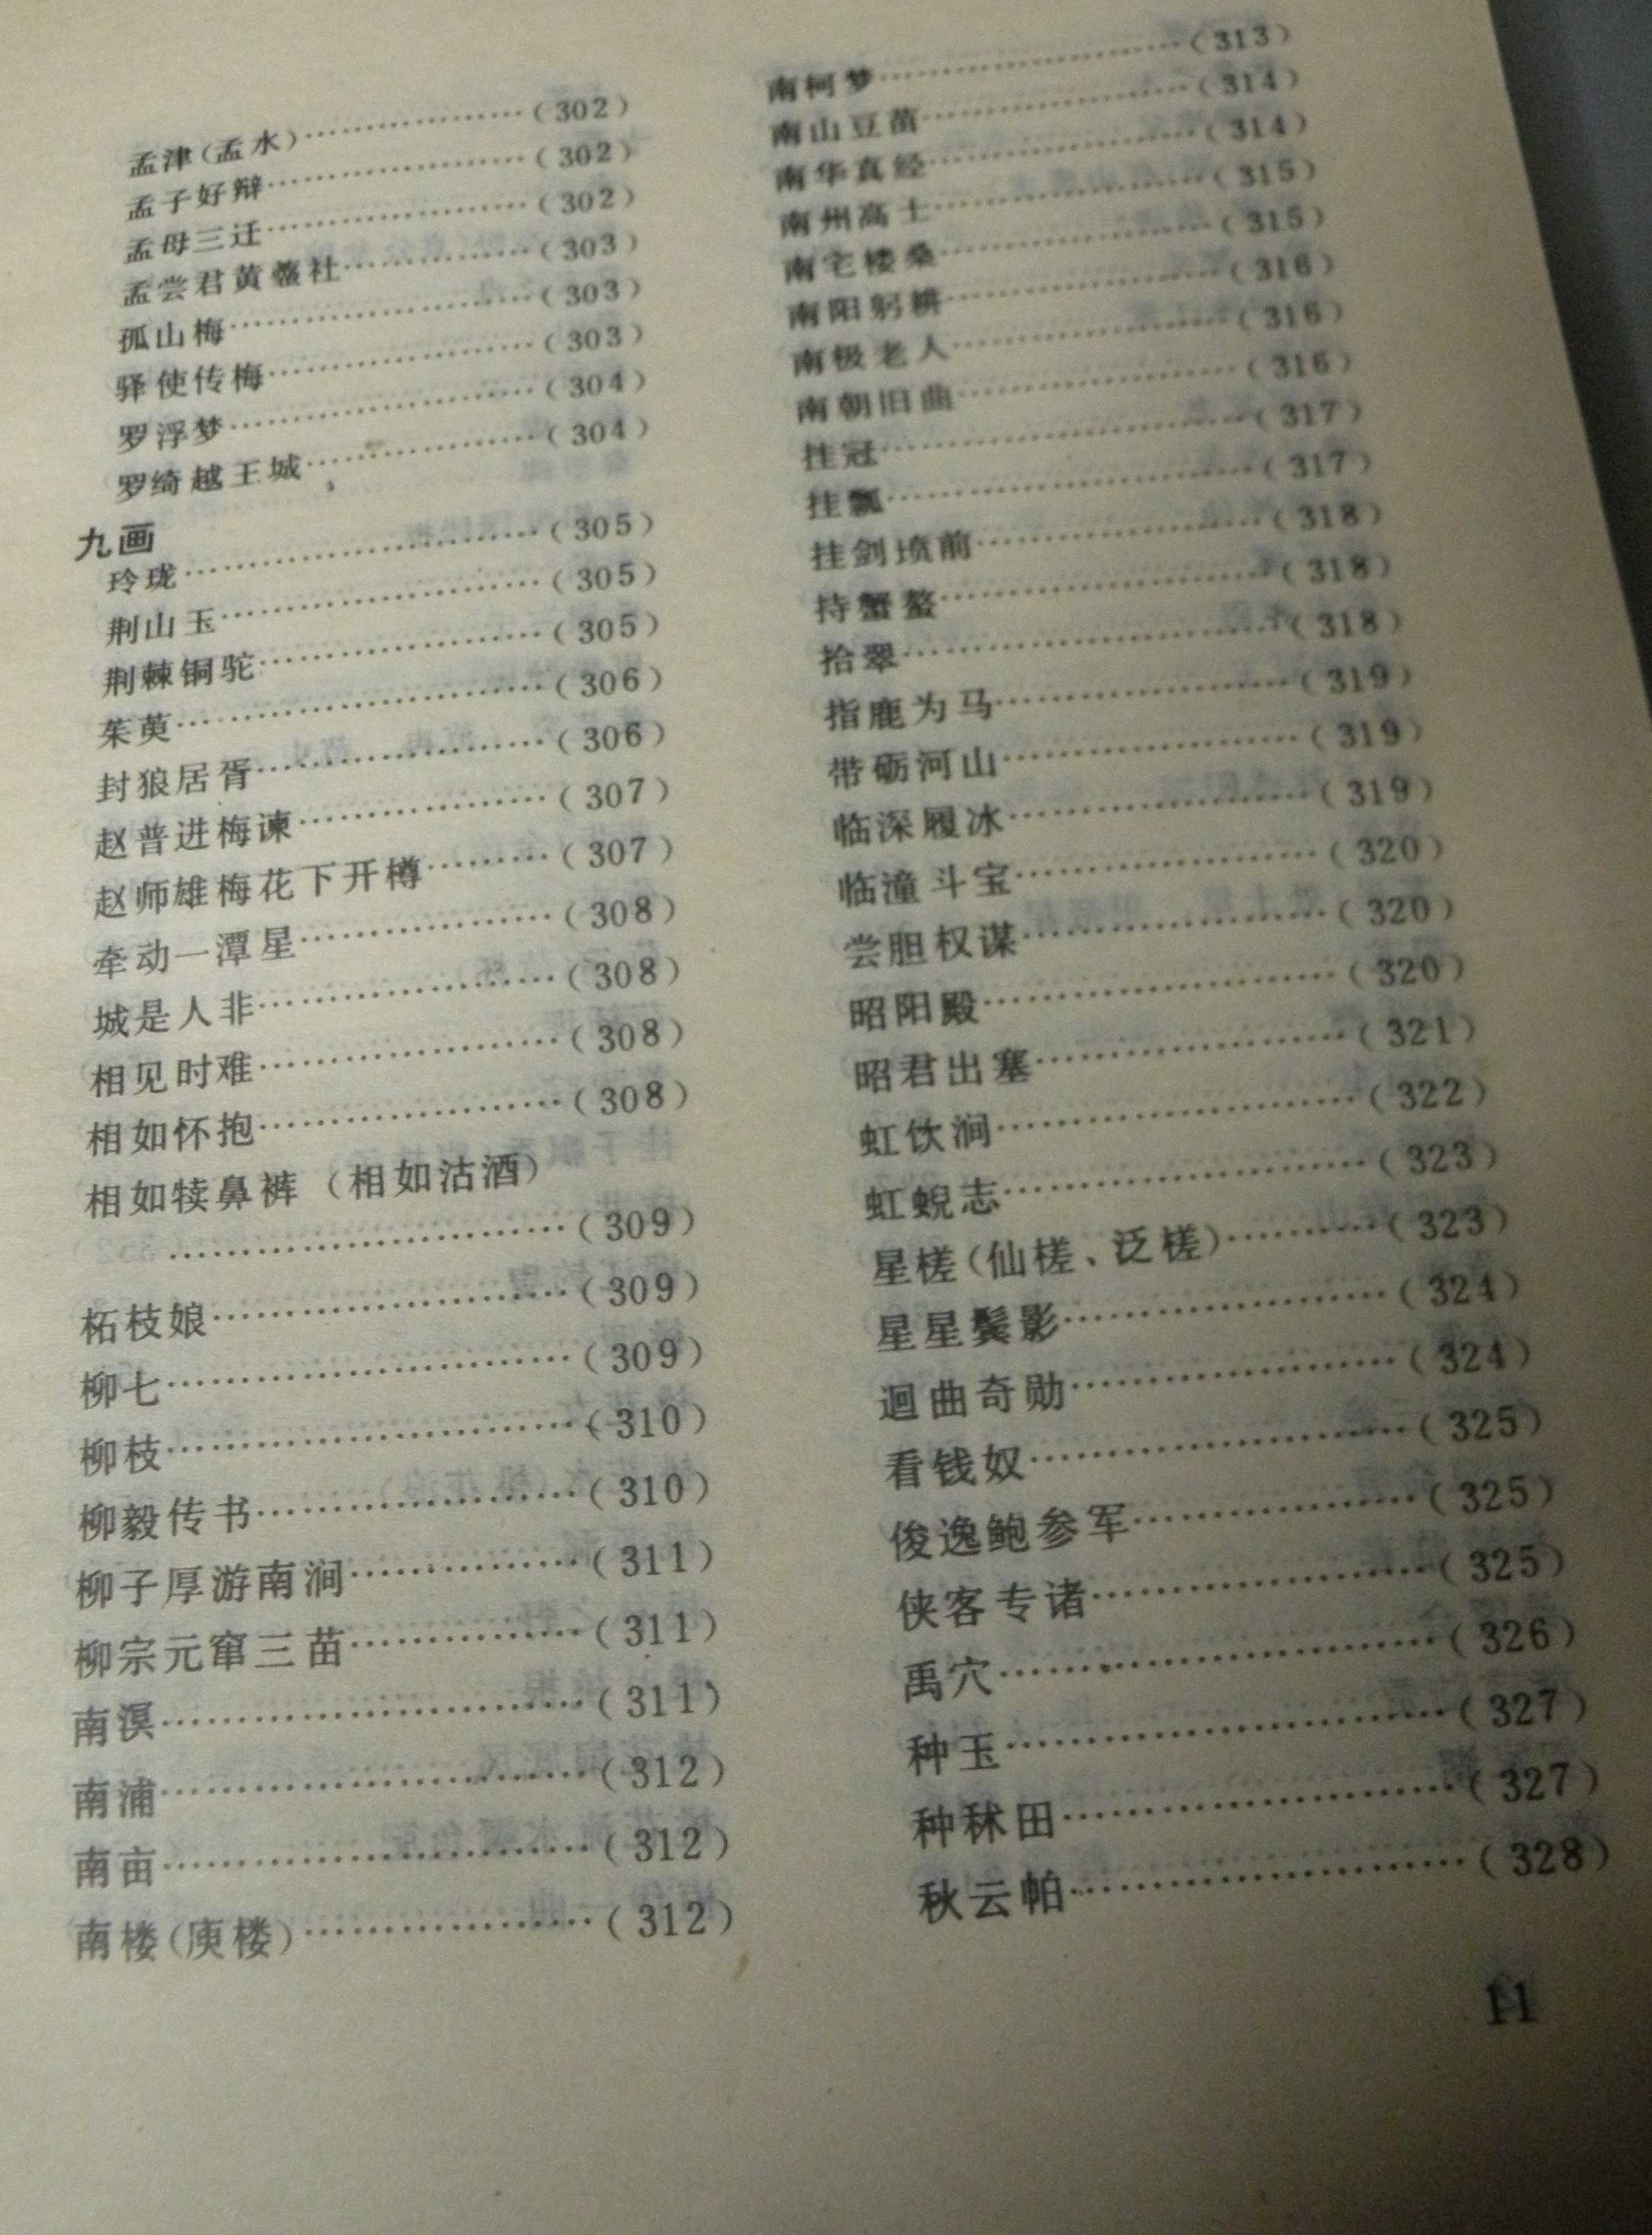 孟津(孟水)………………(302)
孟子好辩…………………(302)
孟母三迁…………………(302)
孟尝君黄虀社……………(303)
孤山梅……………………(303)
驿使传梅…………………(303)
罗浮梦……………………(304)
罗绮越王城………………(304)
九画
玲珑………………………(305)
荆山玉……………………(305)
荆棘铜驼…………………(305)
茱萸………………………(306)
封狼居胥…………………(306)
赵普进梅谏………………(307)
赵师雄梅花下开樽………(307)
牵动一潭星………………(308)
城是人非…………………(308)
相见时难…………………(308)
相如怀抱…………………(308)
相如犊鼻裤（相如沽酒）
…………………………(309)
柘枝娘……………………(309)
柳七………………………(309)
柳枝………………………(310)
柳毅传书…………………(310)
柳子厚游南涧……………(311)
柳宗元窜三苗……………(311)
南溟………………………(311)
南浦………………………(312)
南亩………………………(312)
南楼(庾楼)………………(312)
南柯梦……………………(313)
南山豆苗…………………(314)
南华真经…………………(314)
南州高士…………………(315)
南宅楼桑…………………(315)
南阳躬耕…………………(316)
南极老人…………………(316)
南朝旧曲…………………(316)
挂冠………………………(317)
挂瓢………………………(317)
挂剑坟前…………………(318)
持蟹螯……………………(318)
拾翠………………………(318)
指鹿为马…………………(319)
带砺河山…………………(319)
临深履冰…………………(319)
临潼斗宝…………………(320)
尝胆权谋…………………(320)
昭阳殿……………………(320)
昭君出塞…………………(321)
虹饮涧……………………(322)
虹蜺志……………………(323)
星槎(仙槎、泛槎)………(323)
星星鬓影…………………(324)
迴曲奇勋…………………(324)
看钱奴……………………(325)
俊逸鲍参军………………(325)
侠客专诸…………………(325)
禹穴………………………(326)
种玉………………………(327)
种秫田……………………(327)
秋云帕……………………(328)
11